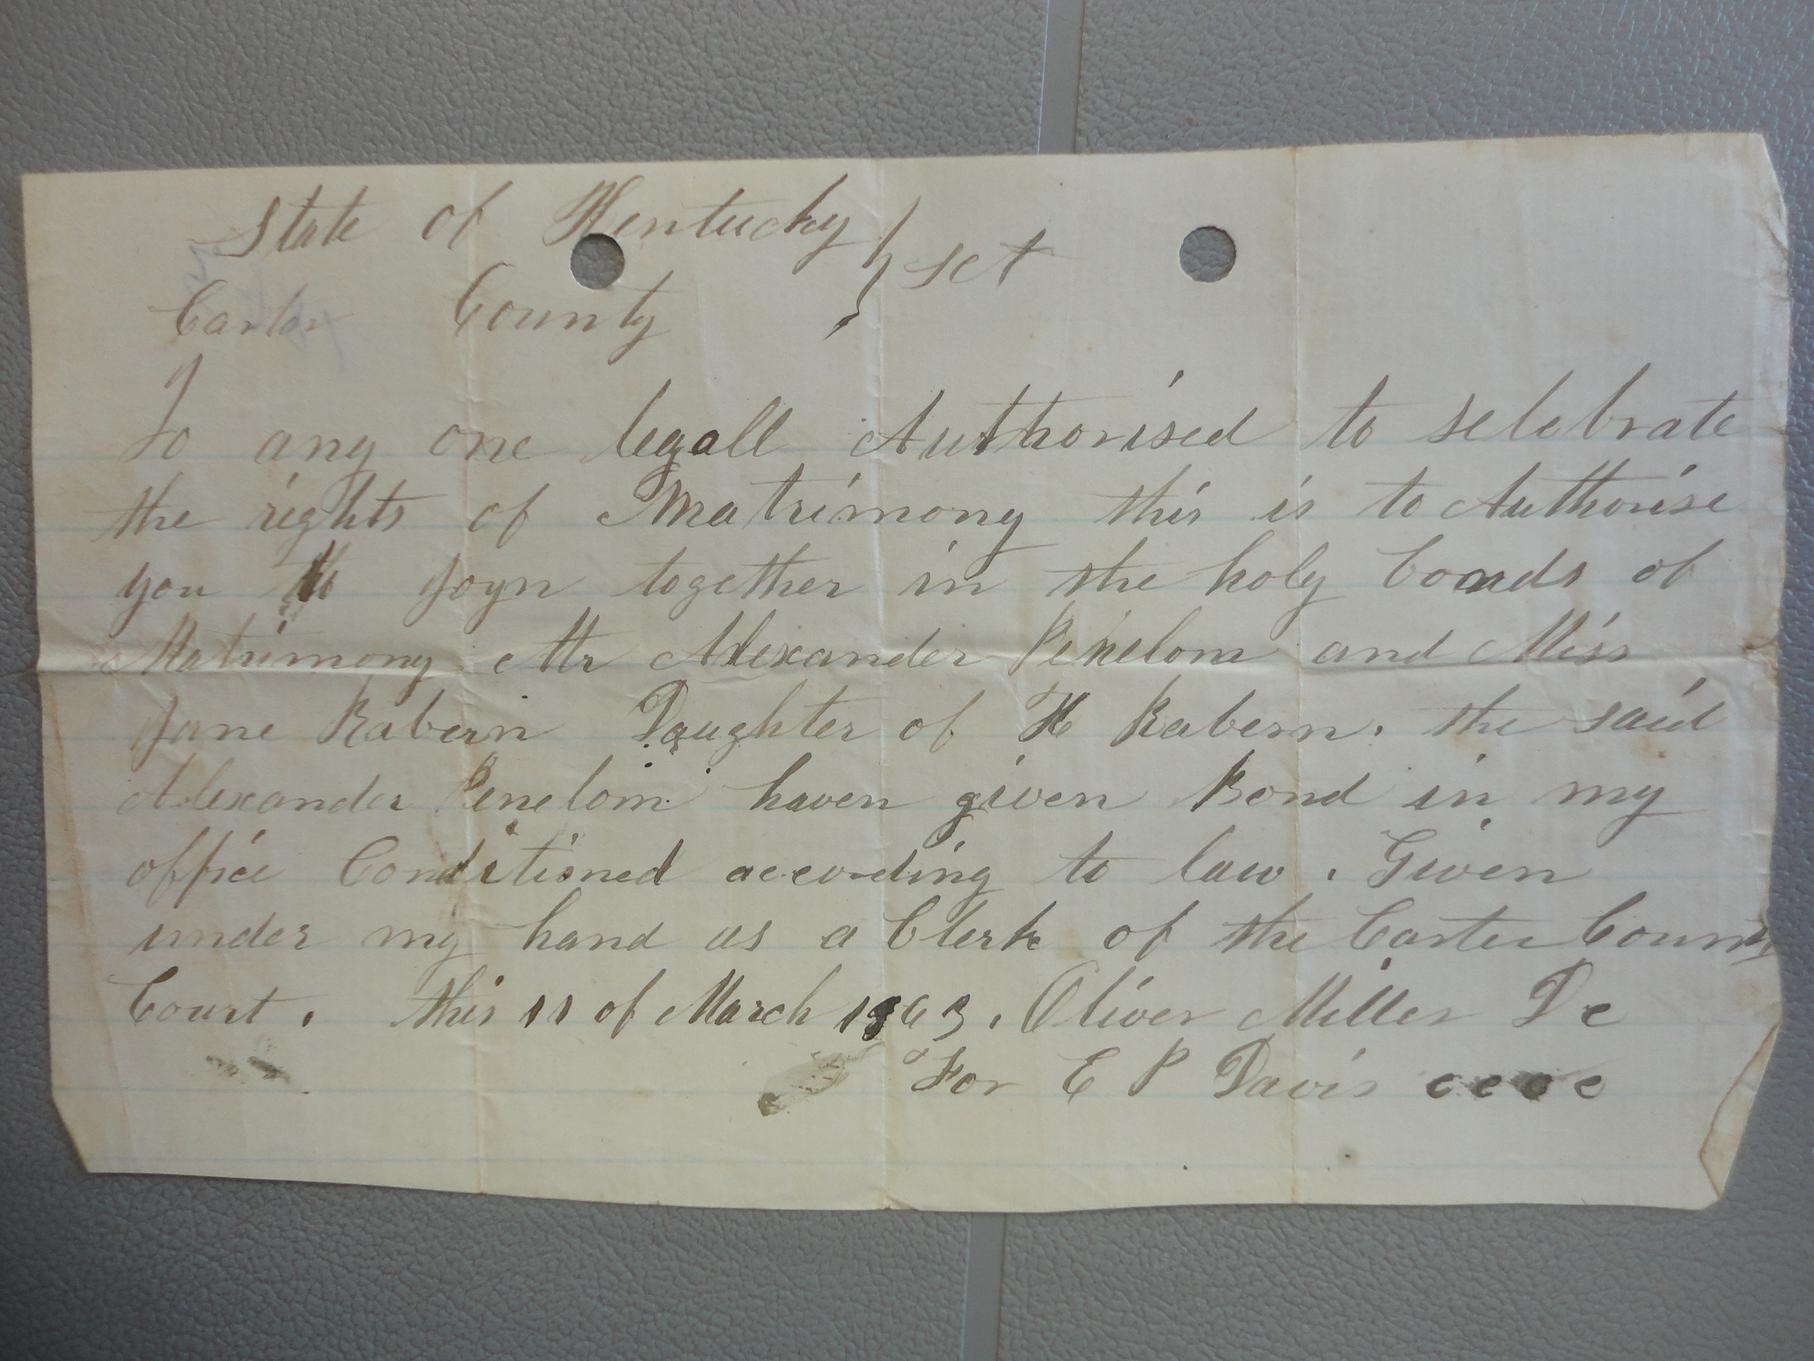 State of Kentucky } sct
Carter County
To any one legall Authorised to selebrate
the rights of Matrimony this is to Authorise
you to Joyn together in the holy boands of
Matrimony Mr Alexander Penelom and Miss
Jane Rabern Daughter of H Rabern. the said
Alexander Penelom haven given Bond in my
office Conditioned according to law. Given
under my hand as a Clerk of the Carter County
Court. this 11 of March 1863. Oliver Miller Dc
For E P Davis cccc